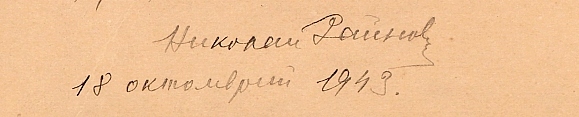 Николай Райнов
18 октомврий 1943.